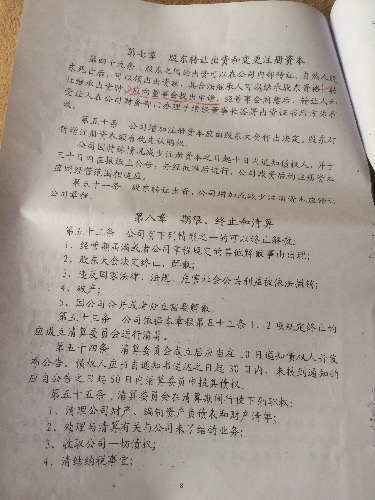 第七章 股东转让出资和变更注册资本
第四十九条、股东之间的出资可以在公司内部转让。自然人股
东死亡后,可以领出出资额,其合法继承人可以继承股东资格;转
让继承出资时,应向董事会提出申请,经董事会同意后,转让人与
受让人在公司财务部门办理手续经董事长签署出资证书后方为有
效。
第五十条 公司增加注册资本应由股东大会作出决定。股东对
新增注册资本额有优先认购权。
公司因特殊情况减少注册资本之日起十日内通知债权人,并于
三十日内在报纸上公告,
应
第五十一条、股东转让出资、公司增加或减少注册资本应修订
公司章程。
第八章 期限、终止和清算
第五十二条 公司有下列情形之一的可以终止解散:
1、经营期届满或者公司章程规定的其他解散事由出现;
2、股东大会决定终止、解散;
3、违反国家法律、法规、危害社会公共利益被依法撤销;
4、破产;
5、因公司合并或者分立需要解散。
第五十三条 公司依据本章程第五十二条1、2项规定终止的
应成立清算委员会进行清算。
第五十四条 清算委员会成立后应当在10日通知债权人并发
布公告。债权人应当自通知书送达之日起30日内,未接到通知的
应自公告之日起60日内向清算委员会申报其债权。
第五十五条、清算委员会在清算期间行使下列职权:
1、清理公司财产、编制资产负债表和财产清单;
2、处理与清算有关与公司未了结的业务;
3、收取公司一切债权;
4、清结纳税事宜;
8